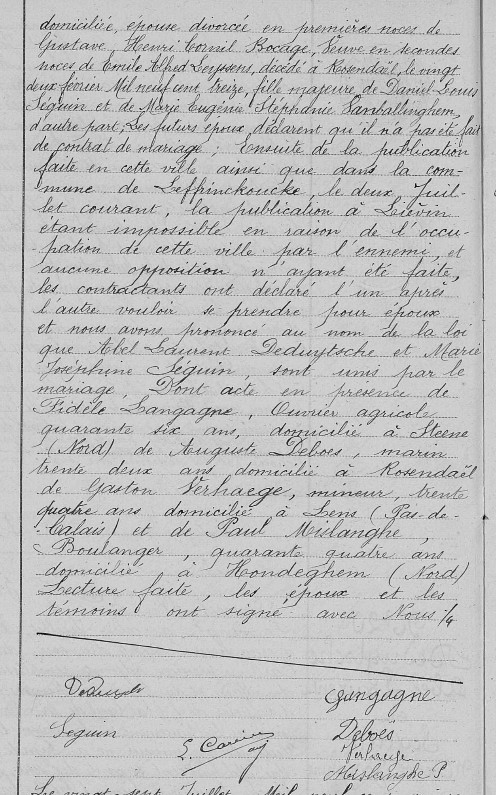 domiciliée, épouse divorcée en premières noces de
Gustave, Henri Corneil Bocage, Veuve en secondes
noces de Emile Alfred Leyssens, décédé à Rosendaël, le vingt
deux février Mil neuf cent treize, fille majeure de Daniel Louis
Seguin et de Marie Eugénie Stéphanie Vanballinghem,
d'autre part; Les futurs époux déclarent qu'il n'a pas été fait
de contrat de mariage; Ensuite de la publication
faite en cette ville ainsi que dans la com-
mune de Leffrinckoucke, le deux Juil-
let courant, la publication à Liévin
étant impossible en raison de l'occu-
pation de cette ville par l'ennemi, et
aucune opposition n'ayant été faite,
les contractants ont déclaré l'un après
l'autre vouloir se prendre pour époux
et nous avons prononcé au nom de la loi
que Abel Laurent Deduytsche et Marie
Joséphine Seguin, sont unis par le
mariage, Dont acte en présence de
Fidèle Langagne, Ouvrier agricole
quarante six ans, domicilié à Steene
(Nord) de Auguste Deboes, marin
trente deux ans domicilié à Rosendaël
de Gaston Verhaege, mineur, trente
quatre ans domicilié à Lens (Pas-de-
-Calais) et de Paul Mislanghe,
Boulanger, quarante quatre ans
domicilié à Hondeghem (Nord)
Lecture faite, les époux et les
témoins ont signé avec Nous ./.
Langagne
Seguin
Deboës
Verhaege
Mislanghe P
Le vingt sept Juillet Mil neuf cent